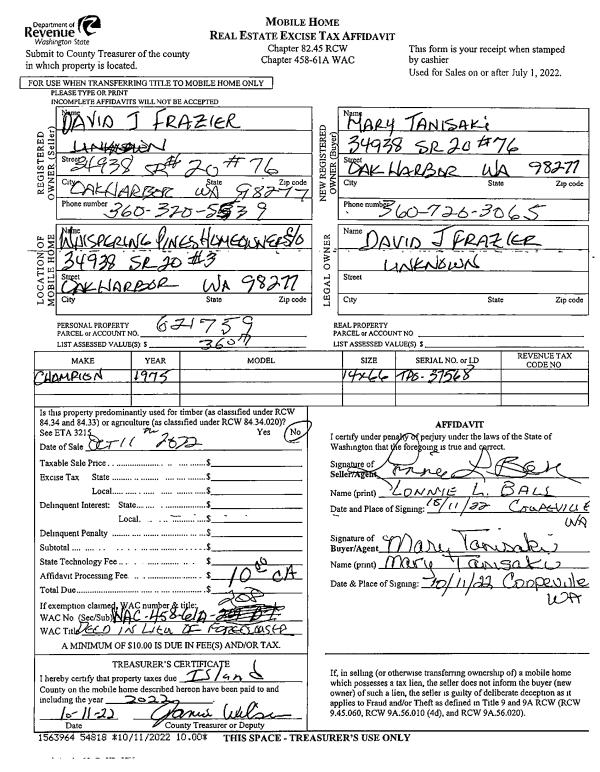 Department of
Revenue
Washington State
Submit to County Treasurer of the county
in which property is located.
MOBILE HOME
REAL ESTATE EXCISE TAX AFFIDAVIT
Chapter 82.45 RCW
Chapter 458-61A WAC
This form is your receipt when stamped
by cashier
Used for Sales on or after July 1, 2022.
FOR USE WHEN TRANSFERRING TITLE TO MOBILE HOME ONLY
PLEASE TYPE OR PRINT
INCOMPLETE AFFIDAVITS WILL NOT BE ACCEPTED
REGISTERED OWNER (Seller)
Name DAVID J FRAZIER
UNKNOWN
Street 34938 SR 20 #76
City OAK HARBOR State WA Zip code 98277
Phone number 360-320-5539
NEW REGISTERED OWNER (Buyer)
Name MARY TANISAKI
34938 SR 20 #76
Street OAK HARBOR WA 98277
City State Zip code
Phone number 360-720-3065
LOCATION OF MOBILE HOME
Name WHISPERING PINES HOMEOWNERS
34938 SR 20 #3
Street OAK HARBOR WA 98277
City State Zip code
LEGAL OWNER
Name DAVID J FRAZIER
UNKNOWN
Street
City State Zip code
PERSONAL PROPERTY
PARCEL or ACCOUNT NO. 621759
LIST ASSESSED VALUE(S) $ 3607
REAL PROPERTY
PARCEL or ACCOUNT NO.
LIST ASSESSED VALUE(S) $
MAKE YEAR MODEL SIZE SERIAL NO. or I.D REVENUE TAX CODE NO
CHAMPION 1975 14x66 37568
Is this property predominantly used for timber (as classified under RCW
84.34 and 84.33) or agriculture (as classified under RCW 84.34.020)?
See ETA 3215 Yes No
Date of Sale OCT 11 2022
Taxable Sale Price $
Excise Tax State $
Local $
Delinquent Interest: State $
Local $
Delinquent Penalty $
Subtotal $
State Technology Fee $
Affidavit Processing Fee $ 10.00 CA
Total Due $
If exemption claimed, WAC number & title: 208
WAC No (Sec/Sub) WAC-458-61A-
WAC Title DEED IN LIEU OF FORECLOSURE
A MINIMUM OF $10.00 IS DUE IN FEE(S) AND/OR TAX.
AFFIDAVIT
I certify under penalty of perjury under the laws of the State of
Washington that the foregoing is true and correct.
Signature of
Seller/Agent
Name (print) LONNIE L. BALL
Date and Place of Signing: 10/11/22 COUPEVILLE
WA
Signature of
Buyer/Agent Mary Tanisaki
Name (print) Mary Tanisaki
Date & Place of Signing: 10/11/22 Coupeville
WA
TREASURER'S CERTIFICATE
I hereby certify that property taxes due Island
County on the mobile home described hereon have been paid to and
including the year 2022
10-11-22
Date County Treasurer or Deputy
If, in selling (or otherwise transferring ownership of) a mobile home
which possesses a tax lien, the seller does not inform the buyer (new
owner) of such a lien, the seller is guilty of deliberate deception as it
applies to Fraud and/or Theft as defined in Title 9 and 9A RCW (RCW
9.45.060, RCW 9A.56.010 (4d), and RCW 9A.56.020).
1563964 54818 *10/11/2022 10.00* THIS SPACE - TREASURER'S USE ONLY